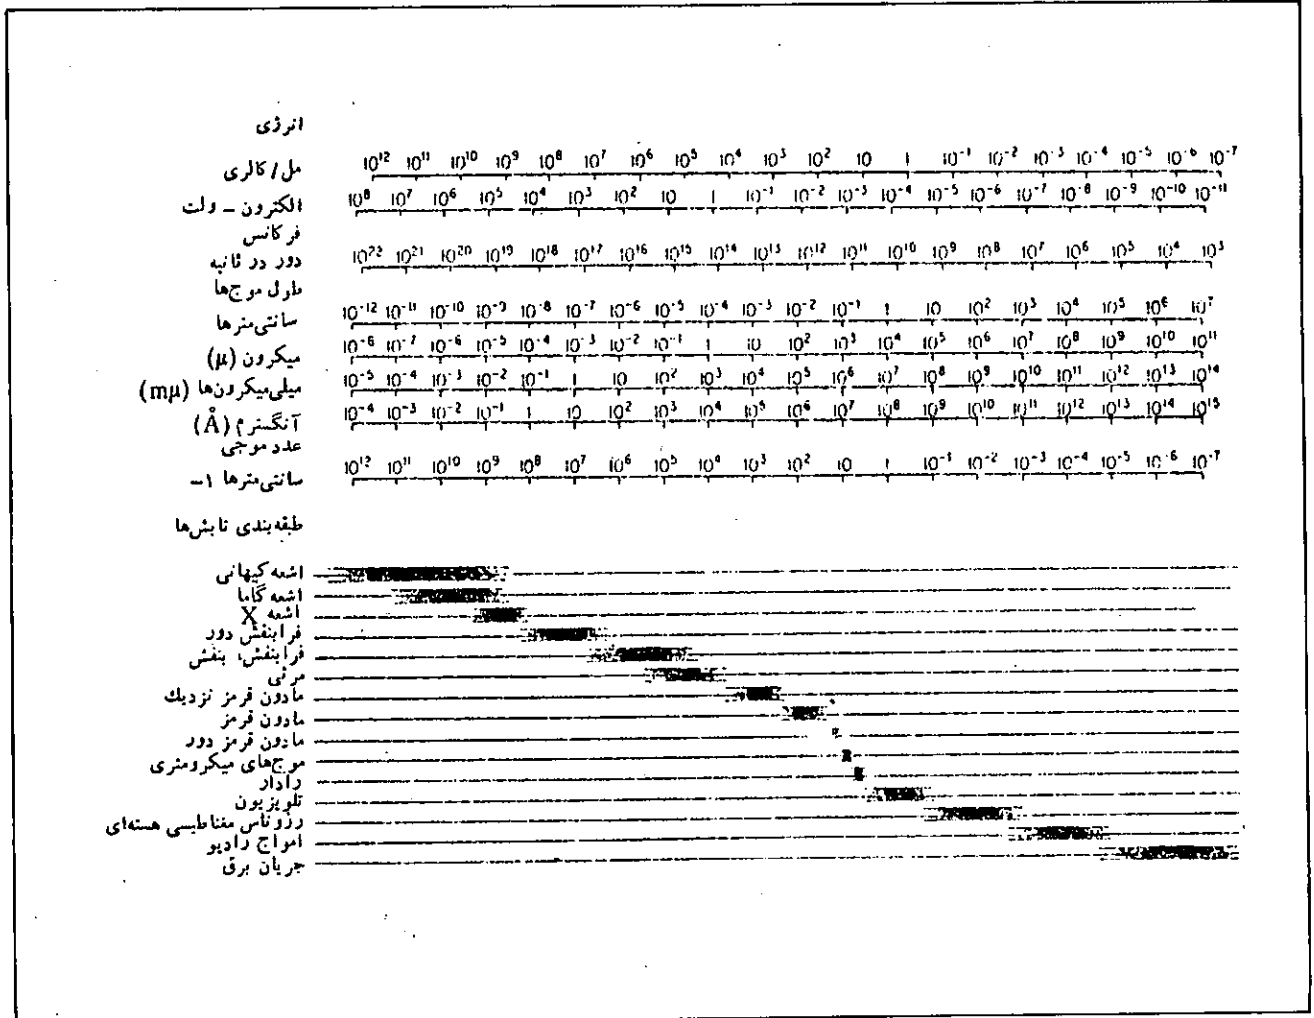 انرژی
مل/کالری 10¹² 10¹¹ 10¹⁰ 10⁹ 10⁸ 10⁷ 10⁶ 10⁵ 10⁴ 10³ 10² 10 1 10⁻¹ 10⁻² 10⁻³ 10⁻⁴ 10⁻⁵ 10⁻⁶ 10⁻⁷
الکترون - ولت 10⁸ 10⁷ 10⁶ 10⁵ 10⁴ 10³ 10² 10 1 10⁻¹ 10⁻² 10⁻³ 10⁻⁴ 10⁻⁵ 10⁻⁶ 10⁻⁷ 10⁻⁸ 10⁻⁹ 10⁻¹⁰ 10⁻¹¹
فرکانس
دور در ثانیه 10²² 10²¹ 10²⁰ 10¹⁹ 10¹⁸ 10¹⁷ 10¹⁶ 10¹⁵ 10¹⁴ 10¹³ 10¹² 10¹¹ 10¹⁰ 10⁹ 10⁸ 10⁷ 10⁶ 10⁵ 10⁴ 10³
طول موج‌ها
سانتی‌مترها 10⁻¹² 10⁻¹¹ 10⁻¹⁰ 10⁻⁹ 10⁻⁸ 10⁻⁷ 10⁻⁶ 10⁻⁵ 10⁻⁴ 10⁻³ 10⁻² 10⁻¹ 1 10 10² 10³ 10⁴ 10⁵ 10⁶ 10⁷
میکرون (μ) 10⁻⁸ 10⁻⁷ 10⁻⁶ 10⁻⁵ 10⁻⁴ 10⁻³ 10⁻² 10⁻¹ 1 10 10² 10³ 10⁴ 10⁵ 10⁶ 10⁷ 10⁸ 10⁹ 10¹⁰ 10¹¹
میلی‌میکرون‌ها (mμ) 10⁻⁵ 10⁻⁴ 10⁻³ 10⁻² 10⁻¹ 1 10 10² 10³ 10⁴ 10⁵ 10⁶ 10⁷ 10⁸ 10⁹ 10¹⁰ 10¹¹ 10¹² 10¹³ 10¹⁴
آنگسترم (Å) 10⁻⁴ 10⁻³ 10⁻² 10⁻¹ 1 10 10² 10³ 10⁴ 10⁵ 10⁶ 10⁷ 10⁸ 10⁹ 10¹⁰ 10¹¹ 10¹² 10¹³ 10¹⁴ 10¹⁵
عدد موجی
سانتی‌مترها ۱- 10¹² 10¹¹ 10¹⁰ 10⁹ 10⁸ 10⁷ 10⁶ 10⁵ 10⁴ 10³ 10² 10 1 10⁻¹ 10⁻² 10⁻³ 10⁻⁴ 10⁻⁵ 10⁻⁶ 10⁻⁷
طبقه‌بندی تابش‌ها
اشعه کیهانی
اشعه گاما
اشعه X
فرابنفش دور
فرابنفش، بنفش
مرئی
مادون قرمز نزدیك
مادون قرمز
مادون قرمز دور
موج‌های میکرومتری
رادار
تلویزیون
رزوناس مغناطیسی هسته‌ای
امواج رادیو
جریان برق